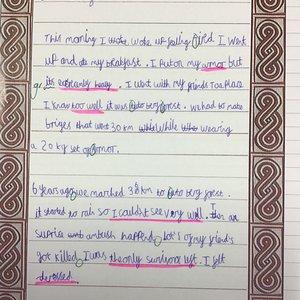 This morning I woke woke up falling tired I went
up and ate my breakfast. I Put on my armor but
its extreamly heavy. I went with my friends to a place
I know too well it was to big forest. we had to make
briges that went 30 km while while wearing
a 20 kg set of armor.
6 years ago we marched 30 km to big forest.
it started to rain so I couldn't see very well. Then an
suprise ambush happend. Lot's of my friends
got killed. I was the only left. I felt